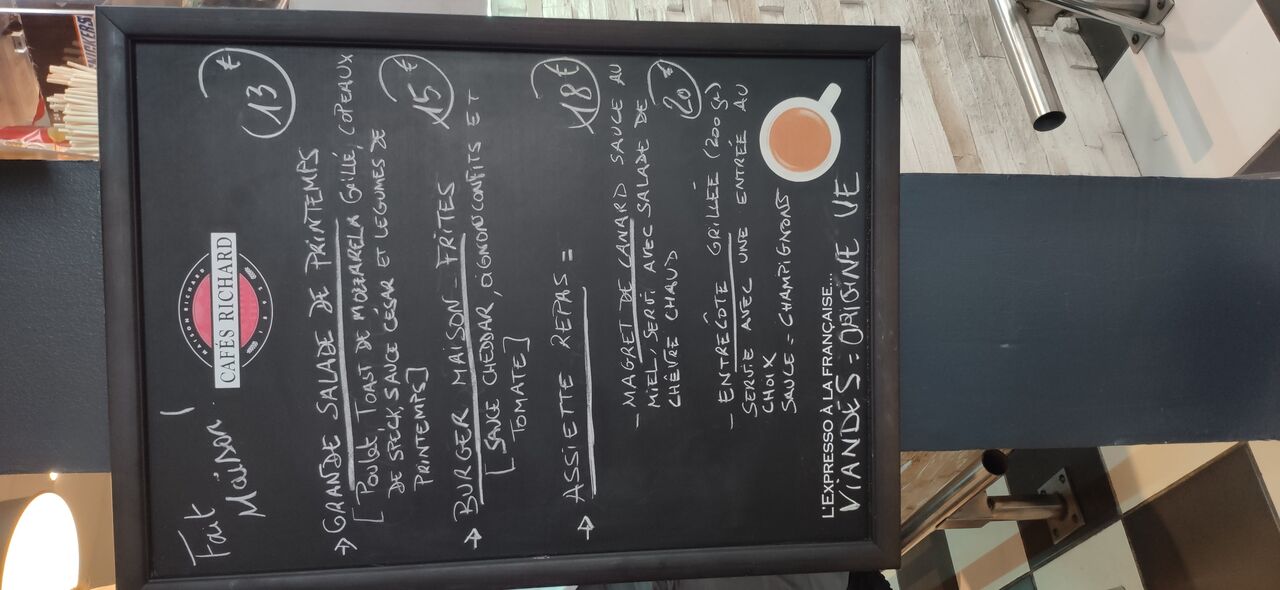 Fait
Maison !
MAISON RICHARD
CAFÉS RICHARD
→ GRANDE SALADE DE PRINTEMPS 13€
[POULET, TOAST DE MOZZARELA GRILLÉ, COPEAUX
DE STECK, SAUCE CÉSAR ET LEGUMES DE
PRINTEMPS]
→ BURGER MAISON - FRITES 15€
[SAUCE CHEDDAR, OIGNONS CONFITS ET
TOMATE]
→ ASSIETTE REPAS = 18€
- MAGRET DE CANARD SAUCE AU
MIEL, SERVI AVEC SALADE DE
CHÈVRE CHAUD
20€
- ENTRECÔTE GRILLÉE (200 gr)
SERVIE AVEC UNE ENTRÉE AU
CHOIX
SAUCE = CHAMPIGNONS
L'EXPRESSO À LA FRANÇAISE...
VIANDES = ORIGINE UE